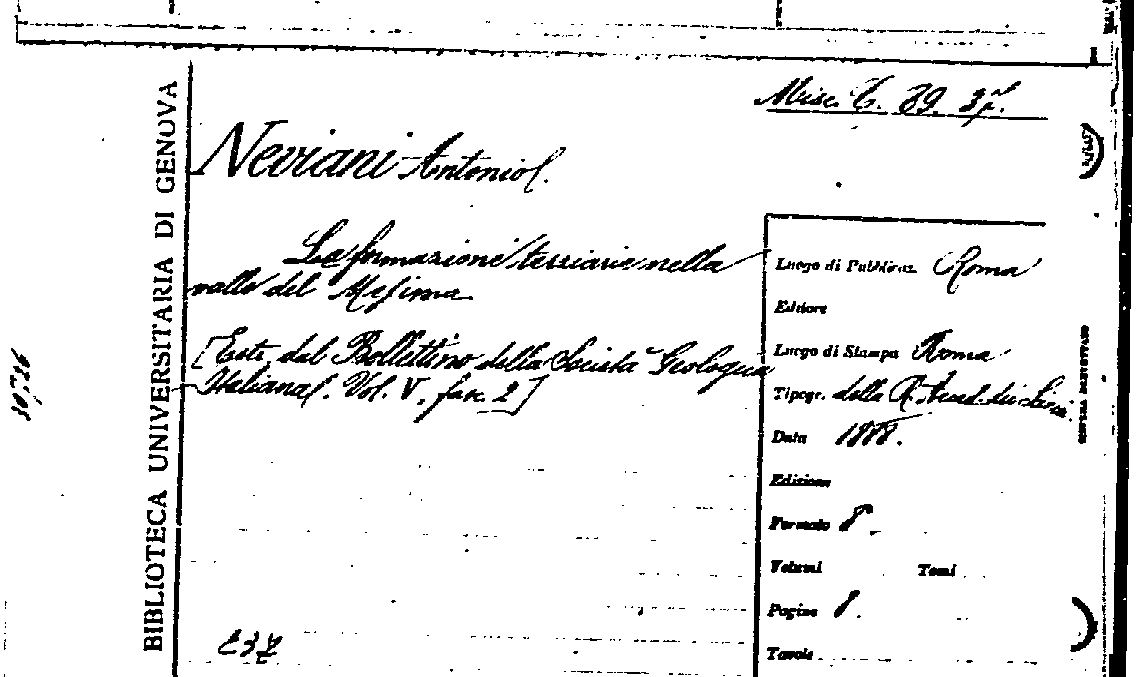 Misc. C. 39. 37.
BIBLIOTECA UNIVERSITARIA DI GENOVA
Neviani Antonio.
Le formazioni terziarie nella
valle del Mesima
[Estr. dal Bollettino della Società Geologica
Italiana. Vol. V, fasc. 2]
Luogo di Pubblicaz. Roma
Editore
Luogo di Stampa Roma
Tipogr. della R. Accad. dei Lincei
Data 1888.
Edizione
Formato 8°.
Volumi Tomi
Pagine 8.
Tavole